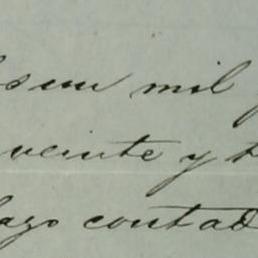 sum mil
veinte y
lazo contad